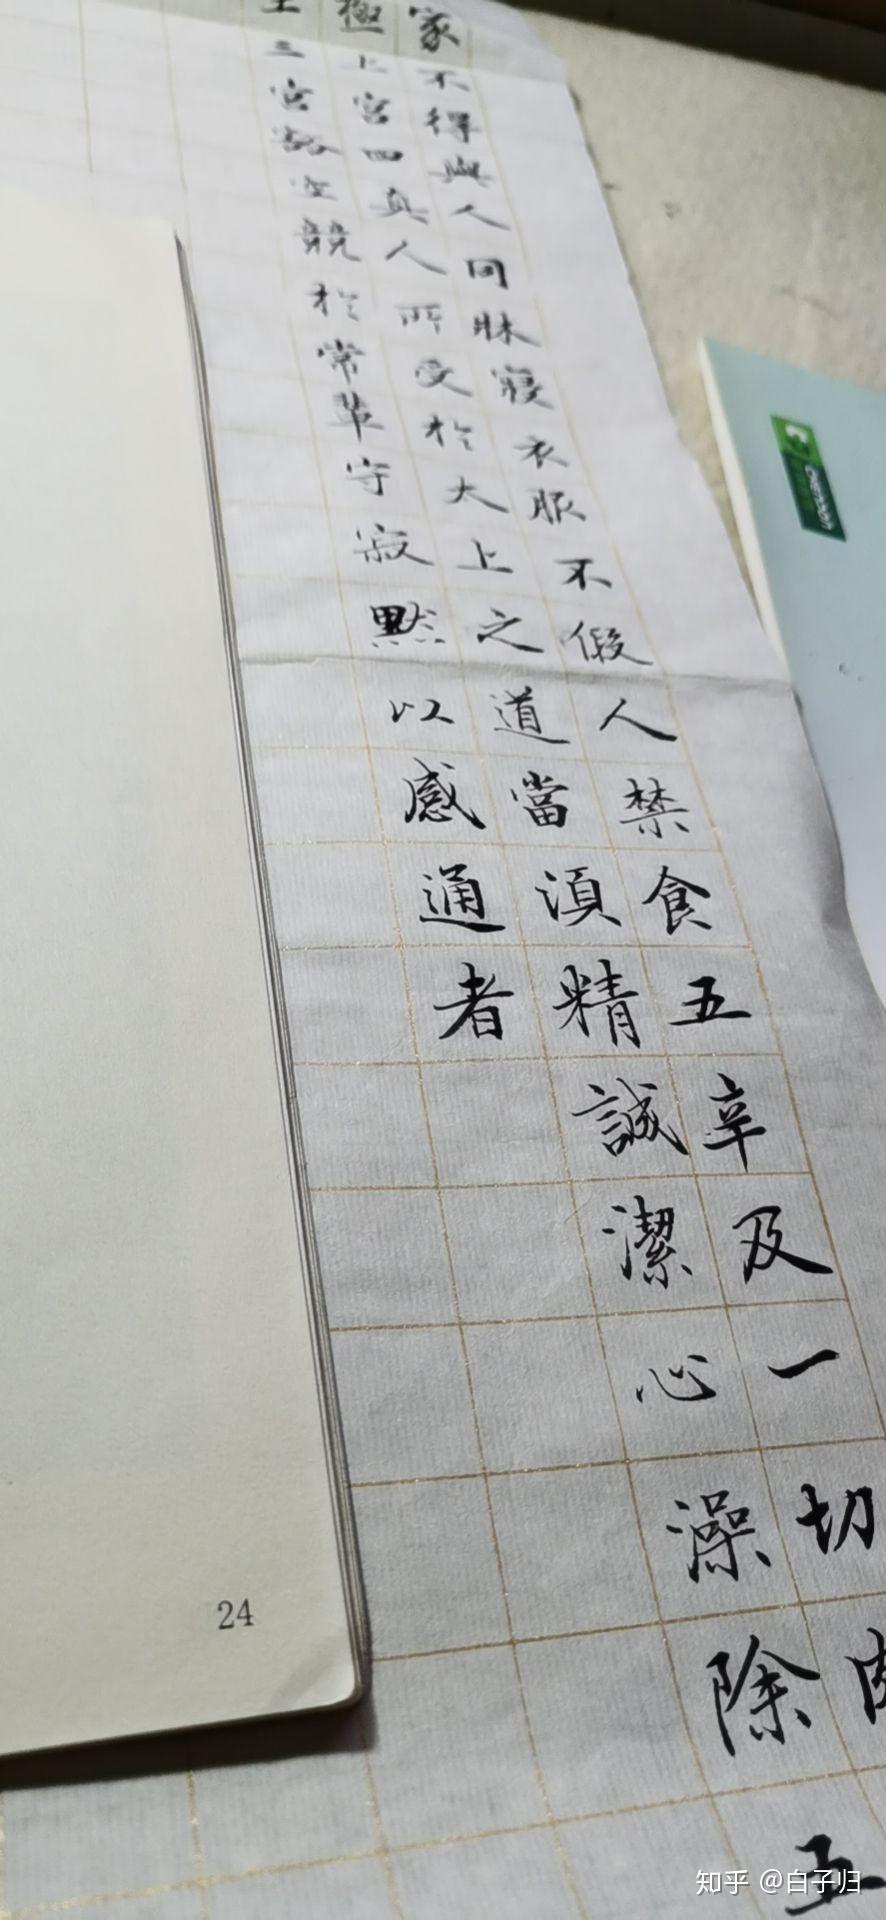 家不得與人同牀寢衣服不假人禁食五辛及一切肉
極上宮四真人所受於大上之道當須精誠潔心澡除五
三宮豁空競於常輩守寂默以感通者
24
知乎 @白子归